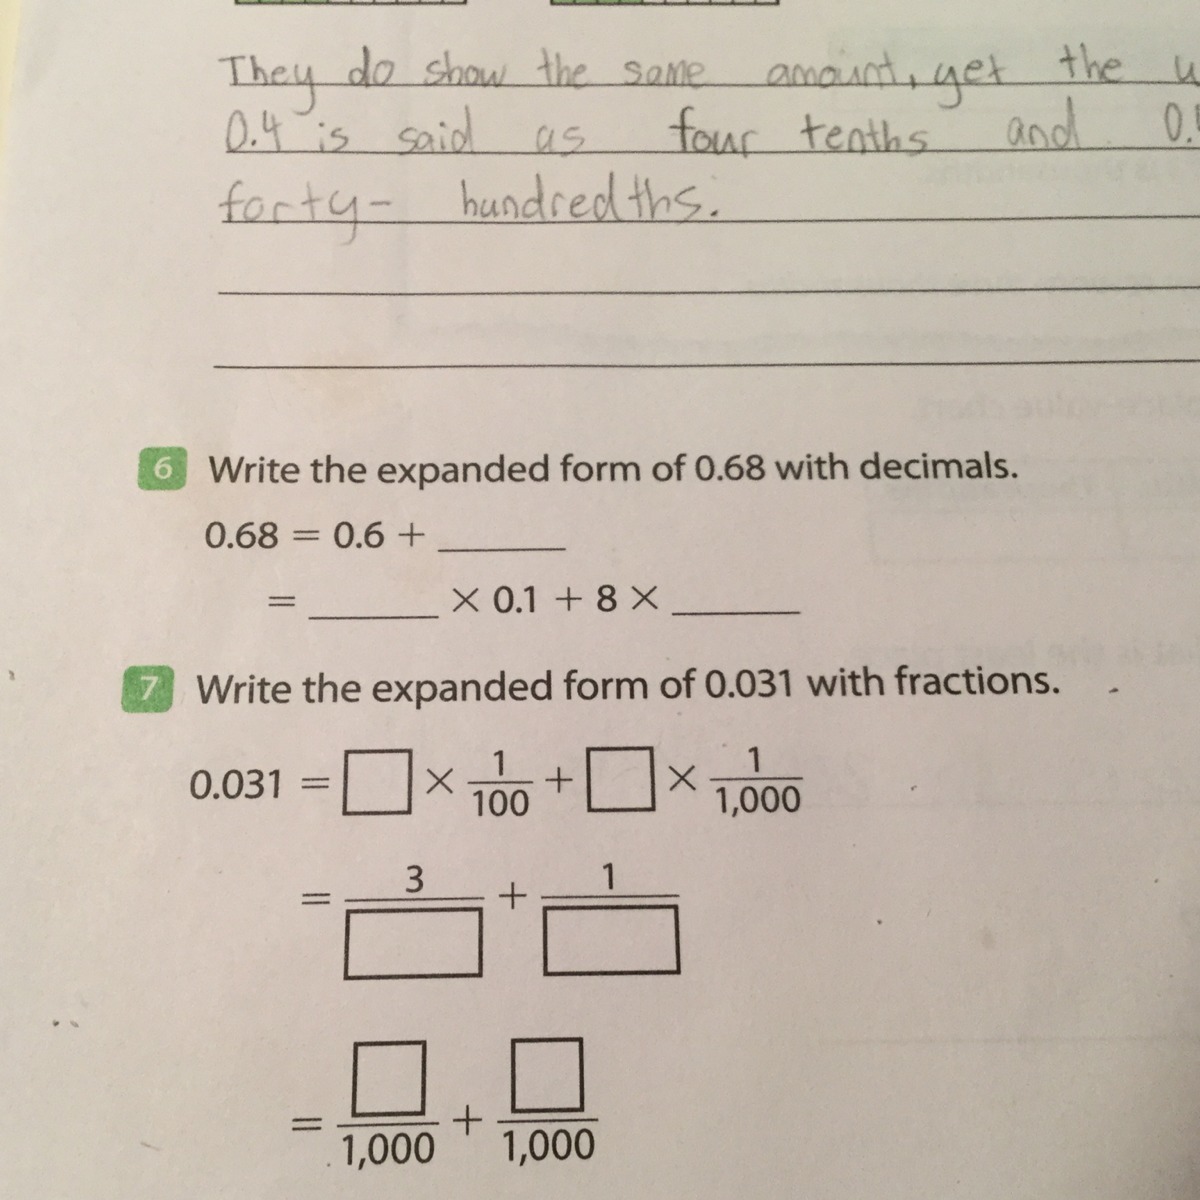 They do show the same amount, yet the
0.4 is said as four tenths and
forty- hundredths.
6 Write the expanded form of 0.68 with decimals.
0.68 = 0.6 + ______
= ______ × 0.1 + 8 × ______
7 Write the expanded form of 0.031 with fractions.
0.031 = □ × 1/100 + □ × 1/1,000
= 3/□ + 1/□
= □/1,000 + □/1,000